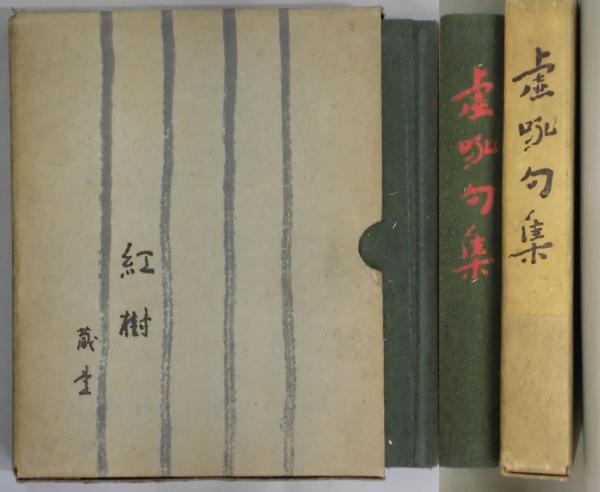 紅樹
虚吼句集
虚吼句集